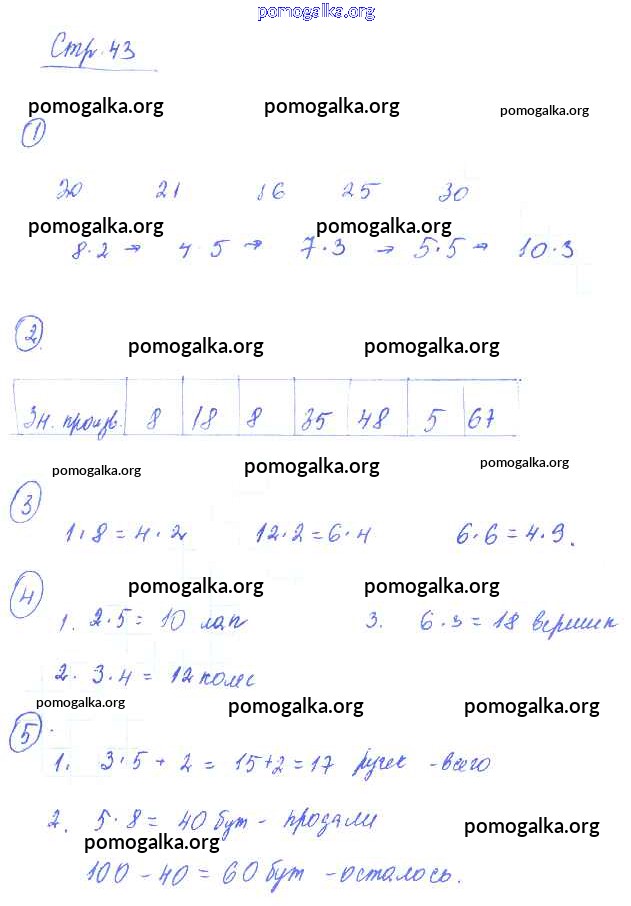 pomogalka.org
Стр. 43
pomogalka.org pomogalka.org pomogalka.org
1
20 21 16 25 30
pomogalka.org pomogalka.org
8·2 → 4·5 → 7·3 → 5·5 → 10·3
2
pomogalka.org pomogalka.org
Зн. произв. 8 18 8 35 48 5 67
pomogalka.org pomogalka.org pomogalka.org
3
1·8 = 4·2 12·2 = 6·4 6·6 = 4·9.
4
pomogalka.org pomogalka.org
1. 2·5 = 10 лап 3. 6·3 = 18 вершин
2. 3·4 = 12 колес
pomogalka.org pomogalka.org pomogalka.org
5
1. 3·5 + 2 = 15+2 = 17 ручек - всего
2. 5·8 = 40 бут - продали
pomogalka.org pomogalka.org
100 - 40 = 60 бут - осталось.